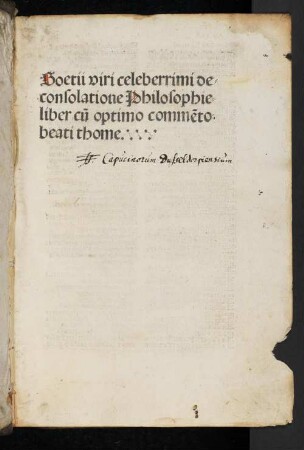 Boetii viri celeberrimi de
consolatione Philosophie
liber cū optimo commēto
beati thome.
ff. Capucinorum Dusseldorpiensium